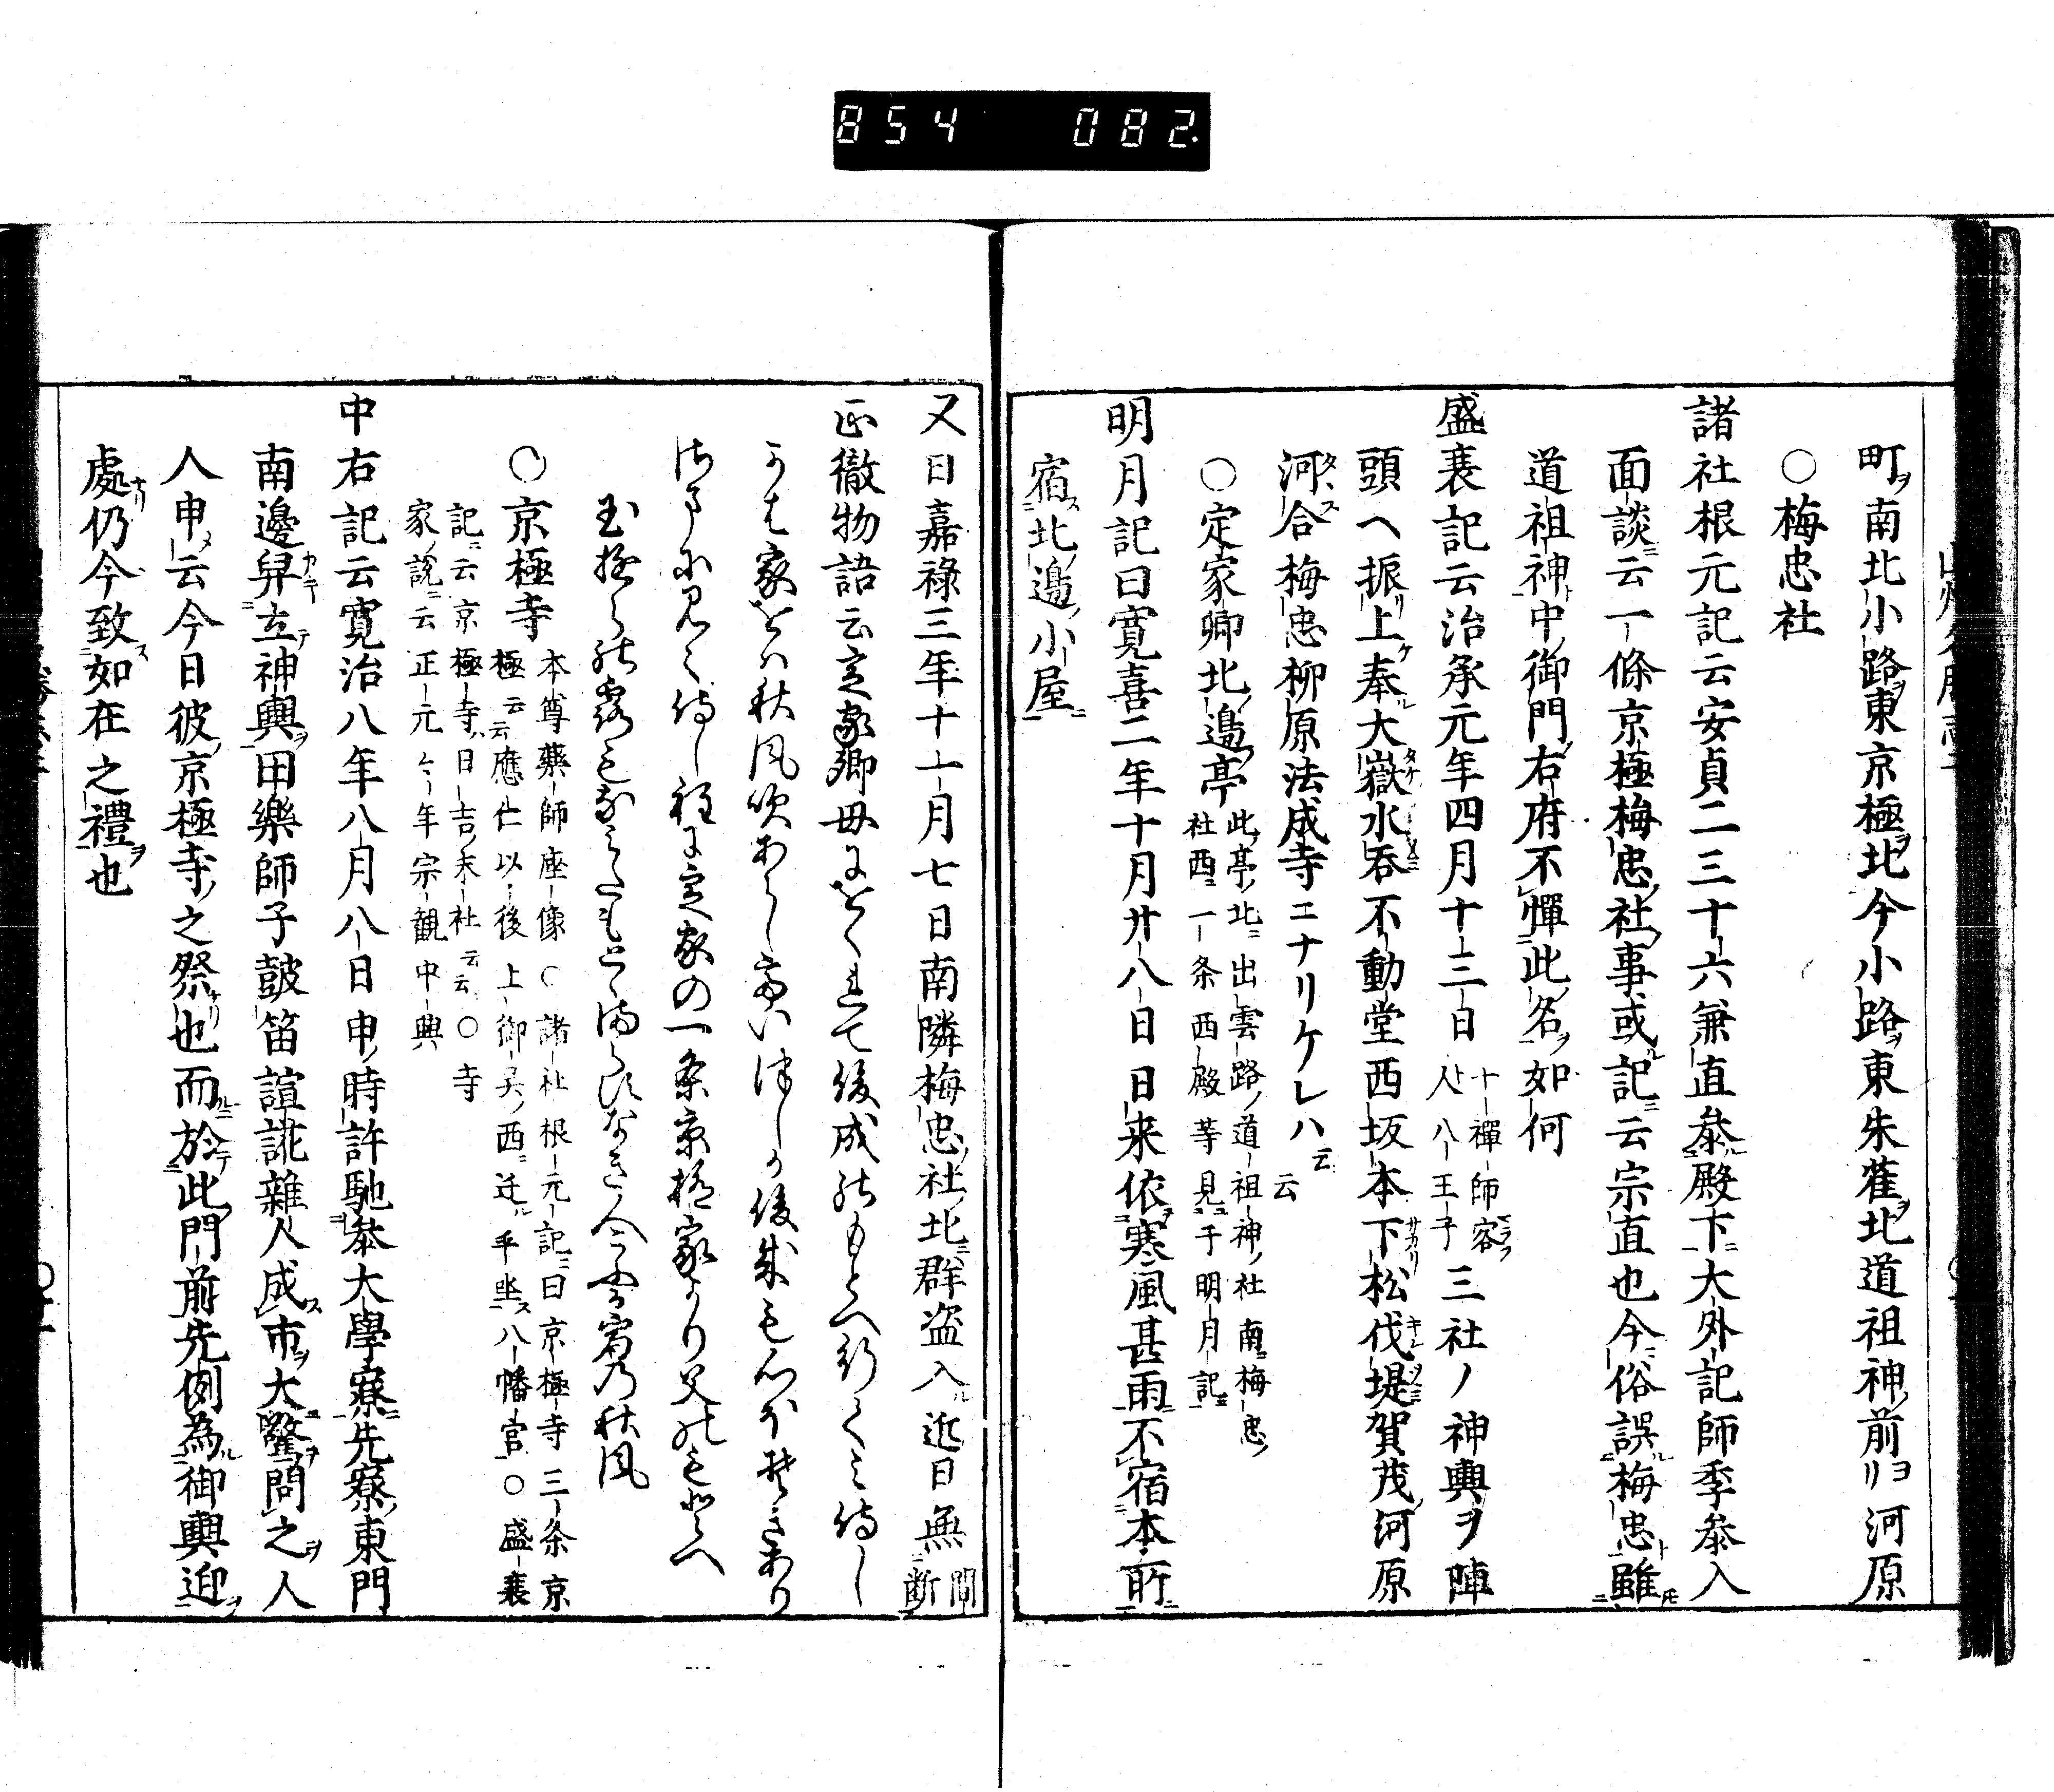 854 082
町南北小路東京極北今小路東朱雀北道祖神前ヨリ河原
○梅忠社
諸社根元記云安貞二三十六兼直參殿下大外記師季參入
面談云一條京極梅忠社事或記云宗直也今俗誤梅忠雖
道祖神中御門右府不憚此名如何
盛衰記云治承元年四月十三日十禅師客人八王子三社ノ神輿ヲ陣
頭ヘ振上奉大嶽水呑不動堂西坂本下松伐堤賀茂河原
河合梅忠柳原法成寺ニナリケレハ云云
○定家卿北邉亭此亭北出雲路道祖神社南梅忠
社西一条西殿等見于明月記
明月記曰寛喜二年十月廿八日日来依寒風甚雨不宿本所
宿北邉小屋
又曰嘉禄三年十一月七日南隣梅忠社北群盗入近日無間断
正徹物語云定家卿母におくれて後成のもとへ行てみ侍し
かは家をは秋風吹あらし
侍し程に定家の一条京極家より父のもとへ
玉ゆらの露も涙もとゝまらすなき人こふる宿の秋風
○京極寺本尊藥師座像○諸社根元記曰京極寺三条京
極云云應仁以後上御灵西迁平坐八幡宮○盛衰
記云京極寺日吉末社云云○寺
家説云正元今年宗観中興
中右記云寛治八年八月八日申時許馳參大學寮先寮東門
南邉舁立神輿田樂師子鼓笛諠譁雜人成市大驚問之人
人申云今日彼京極寺之祭也而於此門前先例為御輿迎
處仍今致如在之禮也